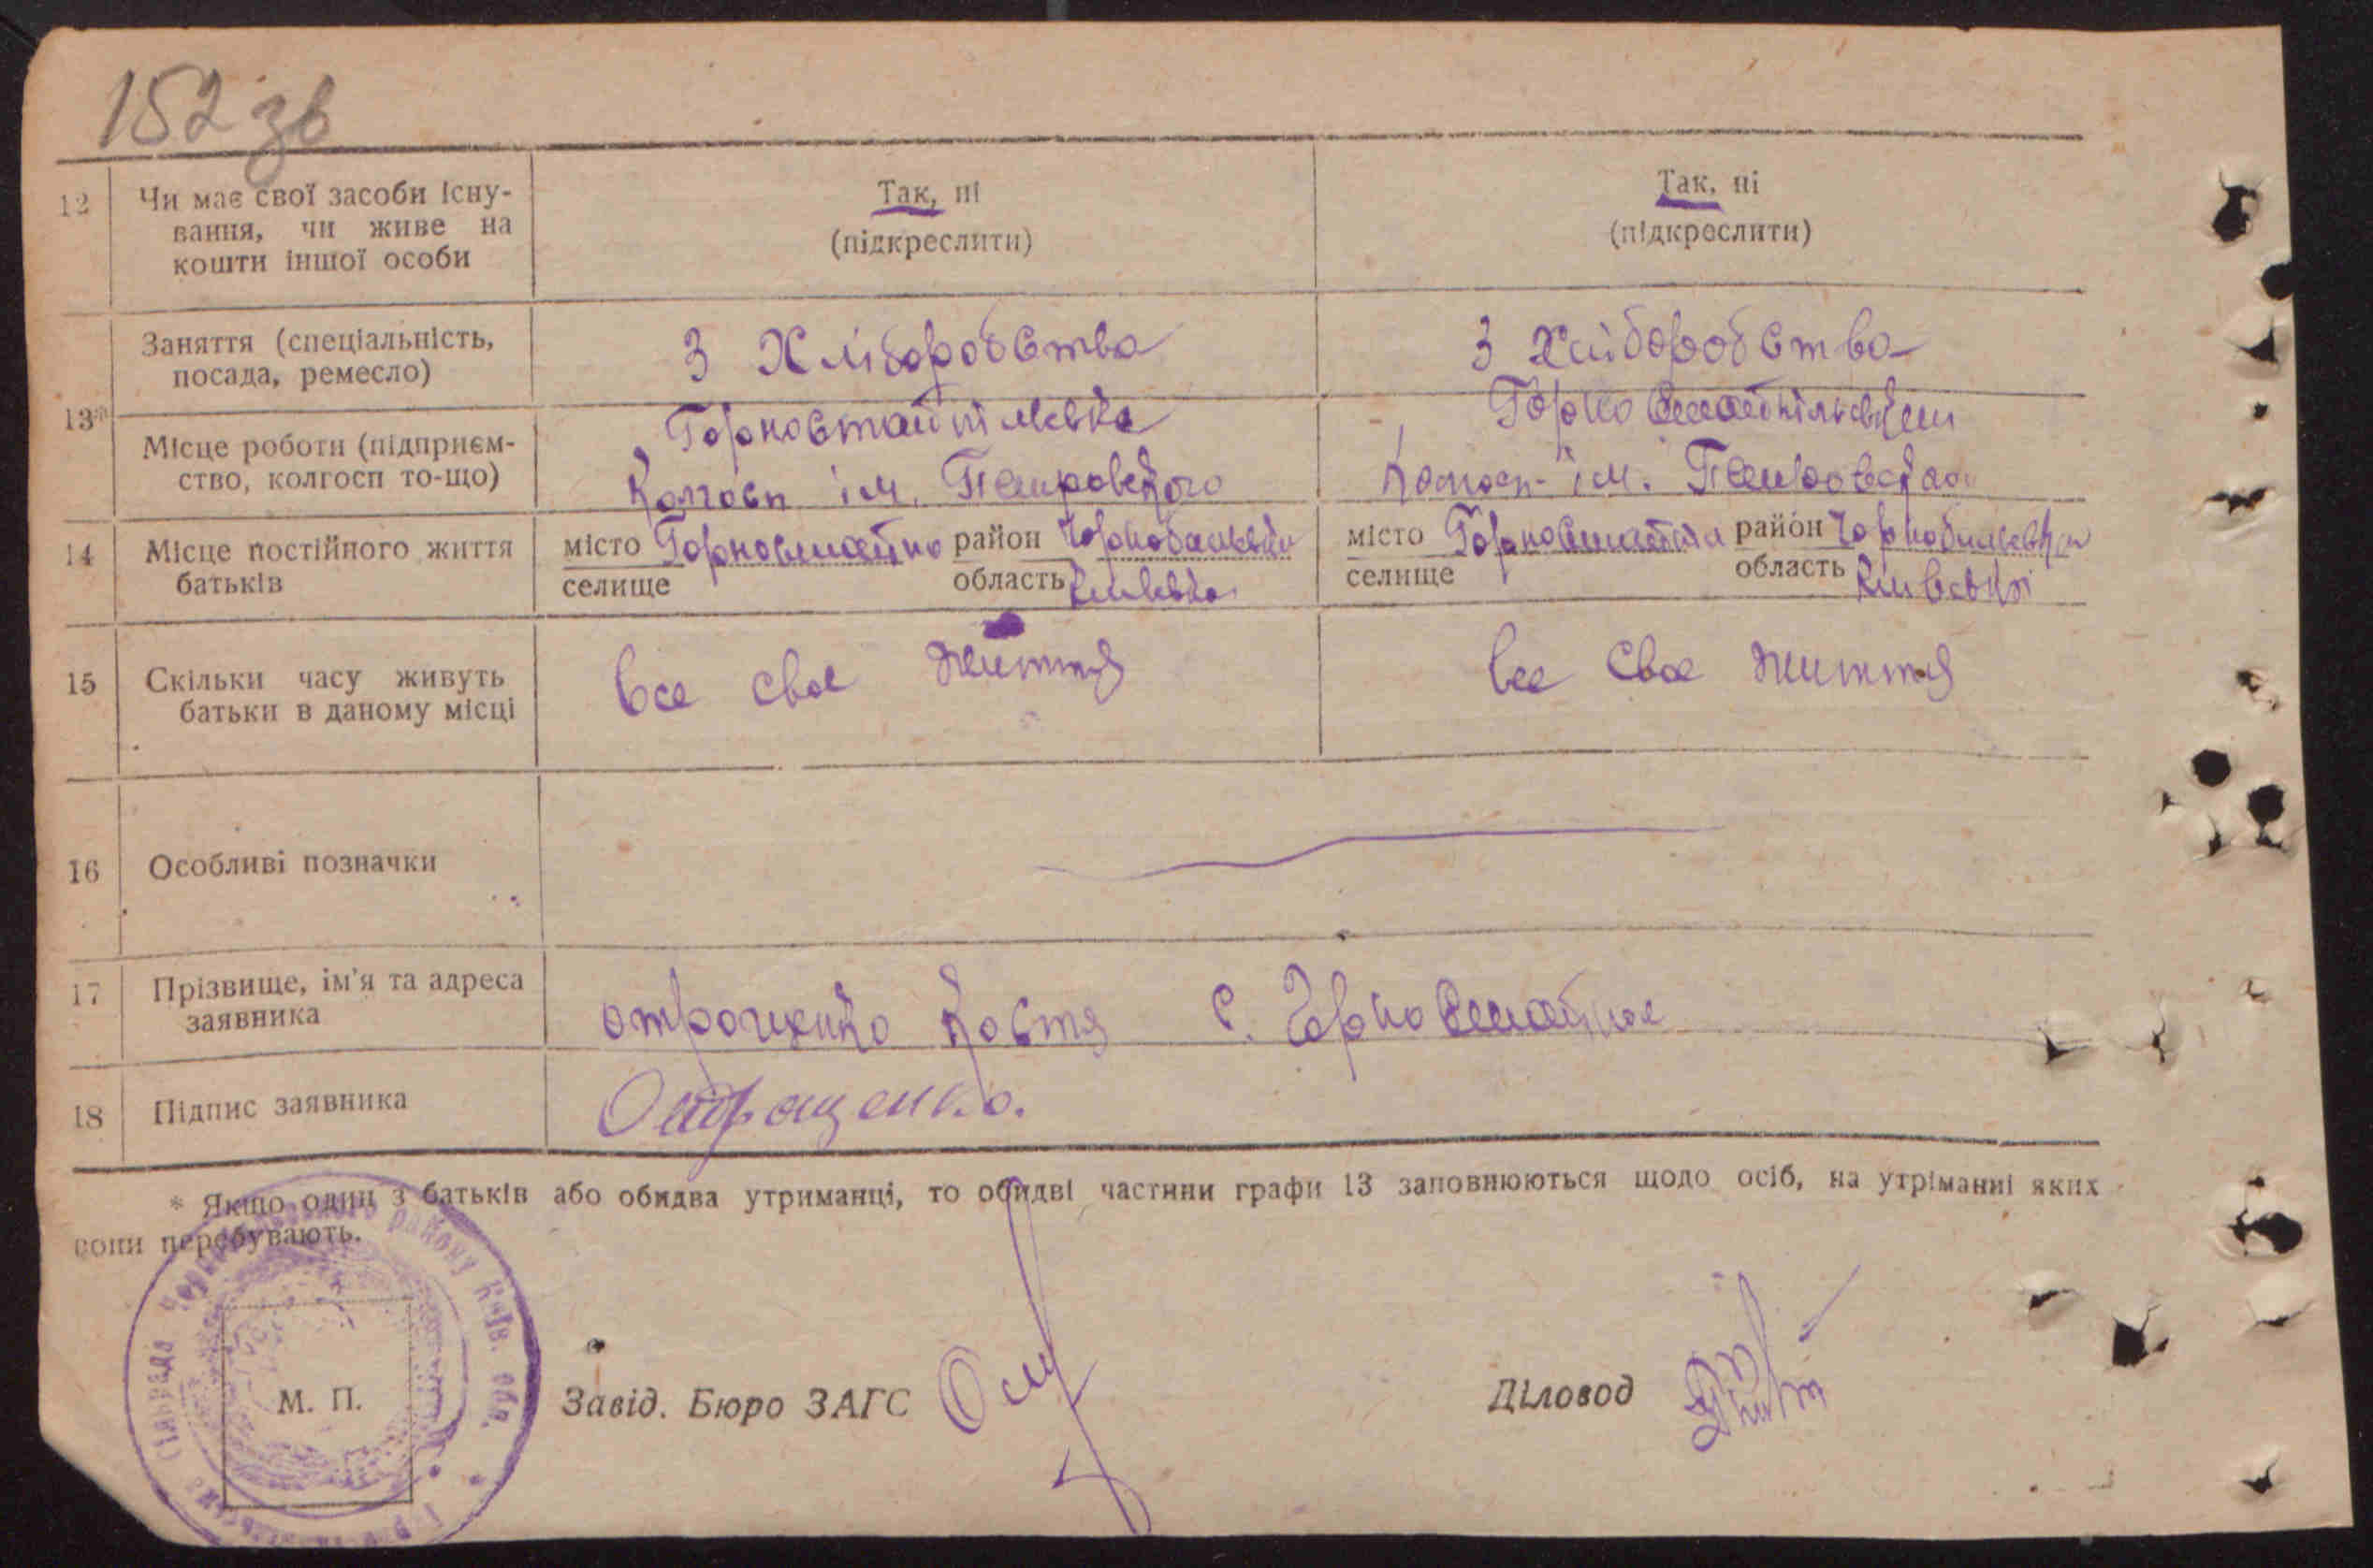 152 зв
12 Чи має свої засоби існу- Так, ні Так, ні
вання, чи живе на (підкреслити) (підкреслити)
кошти іншої особи
Заняття (спеціальність, З Хліборобства З Хліборобства
посада, ремесло)
13* Горностайпільська
Місце роботи (підприєм-
ство, колгосп то-що) Колгосп ім. Петровського Колгосп ім. Петровського
14 Місце постійного життя місто район місто район
батьків селище область Київська селище область
15 Скільки часу живуть все своє життя все своє життя
батьки в даному місці
16 Особливі позначки
17 Прізвище, ім'я та адреса
заявника отрощенко Костя с.
18 Підпис заявника Отрощенко.
* Якщо один з батьків або обидва утриманці, то обидві частини графи 13 заповнюються щодо осіб, на утріманні яких
вони перебувають.
району Київ. обл.
Сільрада
М. П. Завід. Бюро ЗАГС Діловод